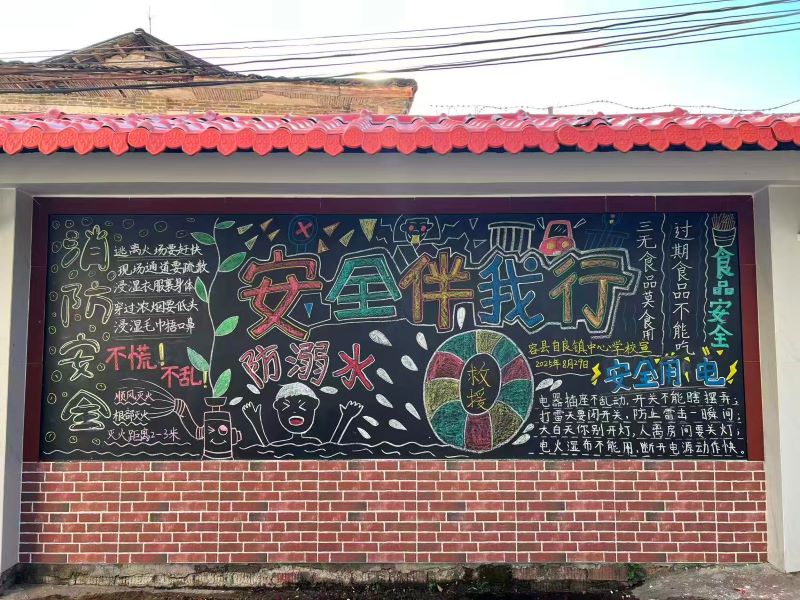 消防安全
逃离火场要好快
现场通道要疏散
浸湿衣服裹身体
穿过浓烟要低头
浸湿毛巾捂口鼻
不慌!
不乱!
顺风灭火
根部灭火
灭火距离2-3米
安全伴我行
防溺水
救援
容县自良镇中心学校宣
2025年8月27日
食品安全
过期食品不能吃
三无食品莫食用
安全用电
电器插座不乱动,开关不能瞎摆弄;
打雷天要闭开关,防止雷击一瞬间;
大白天你别开灯,人离房间要关灯;
电火湿布不能用,断开电源动作快。